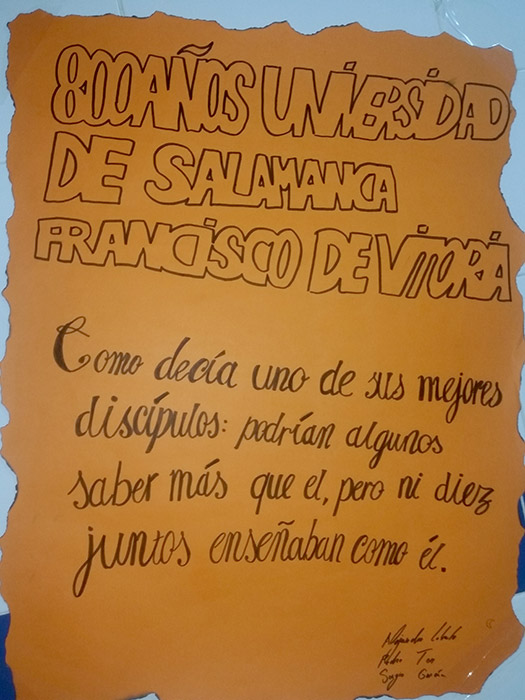 800 AÑOS UNIVERSIDAD
DE SALAMANCA
FRANCISCO DE VITORIA
Como decía uno de sus mejores
discípulos: podrían algunos
saber más que el, pero ni diez
juntos enseñaban como él.